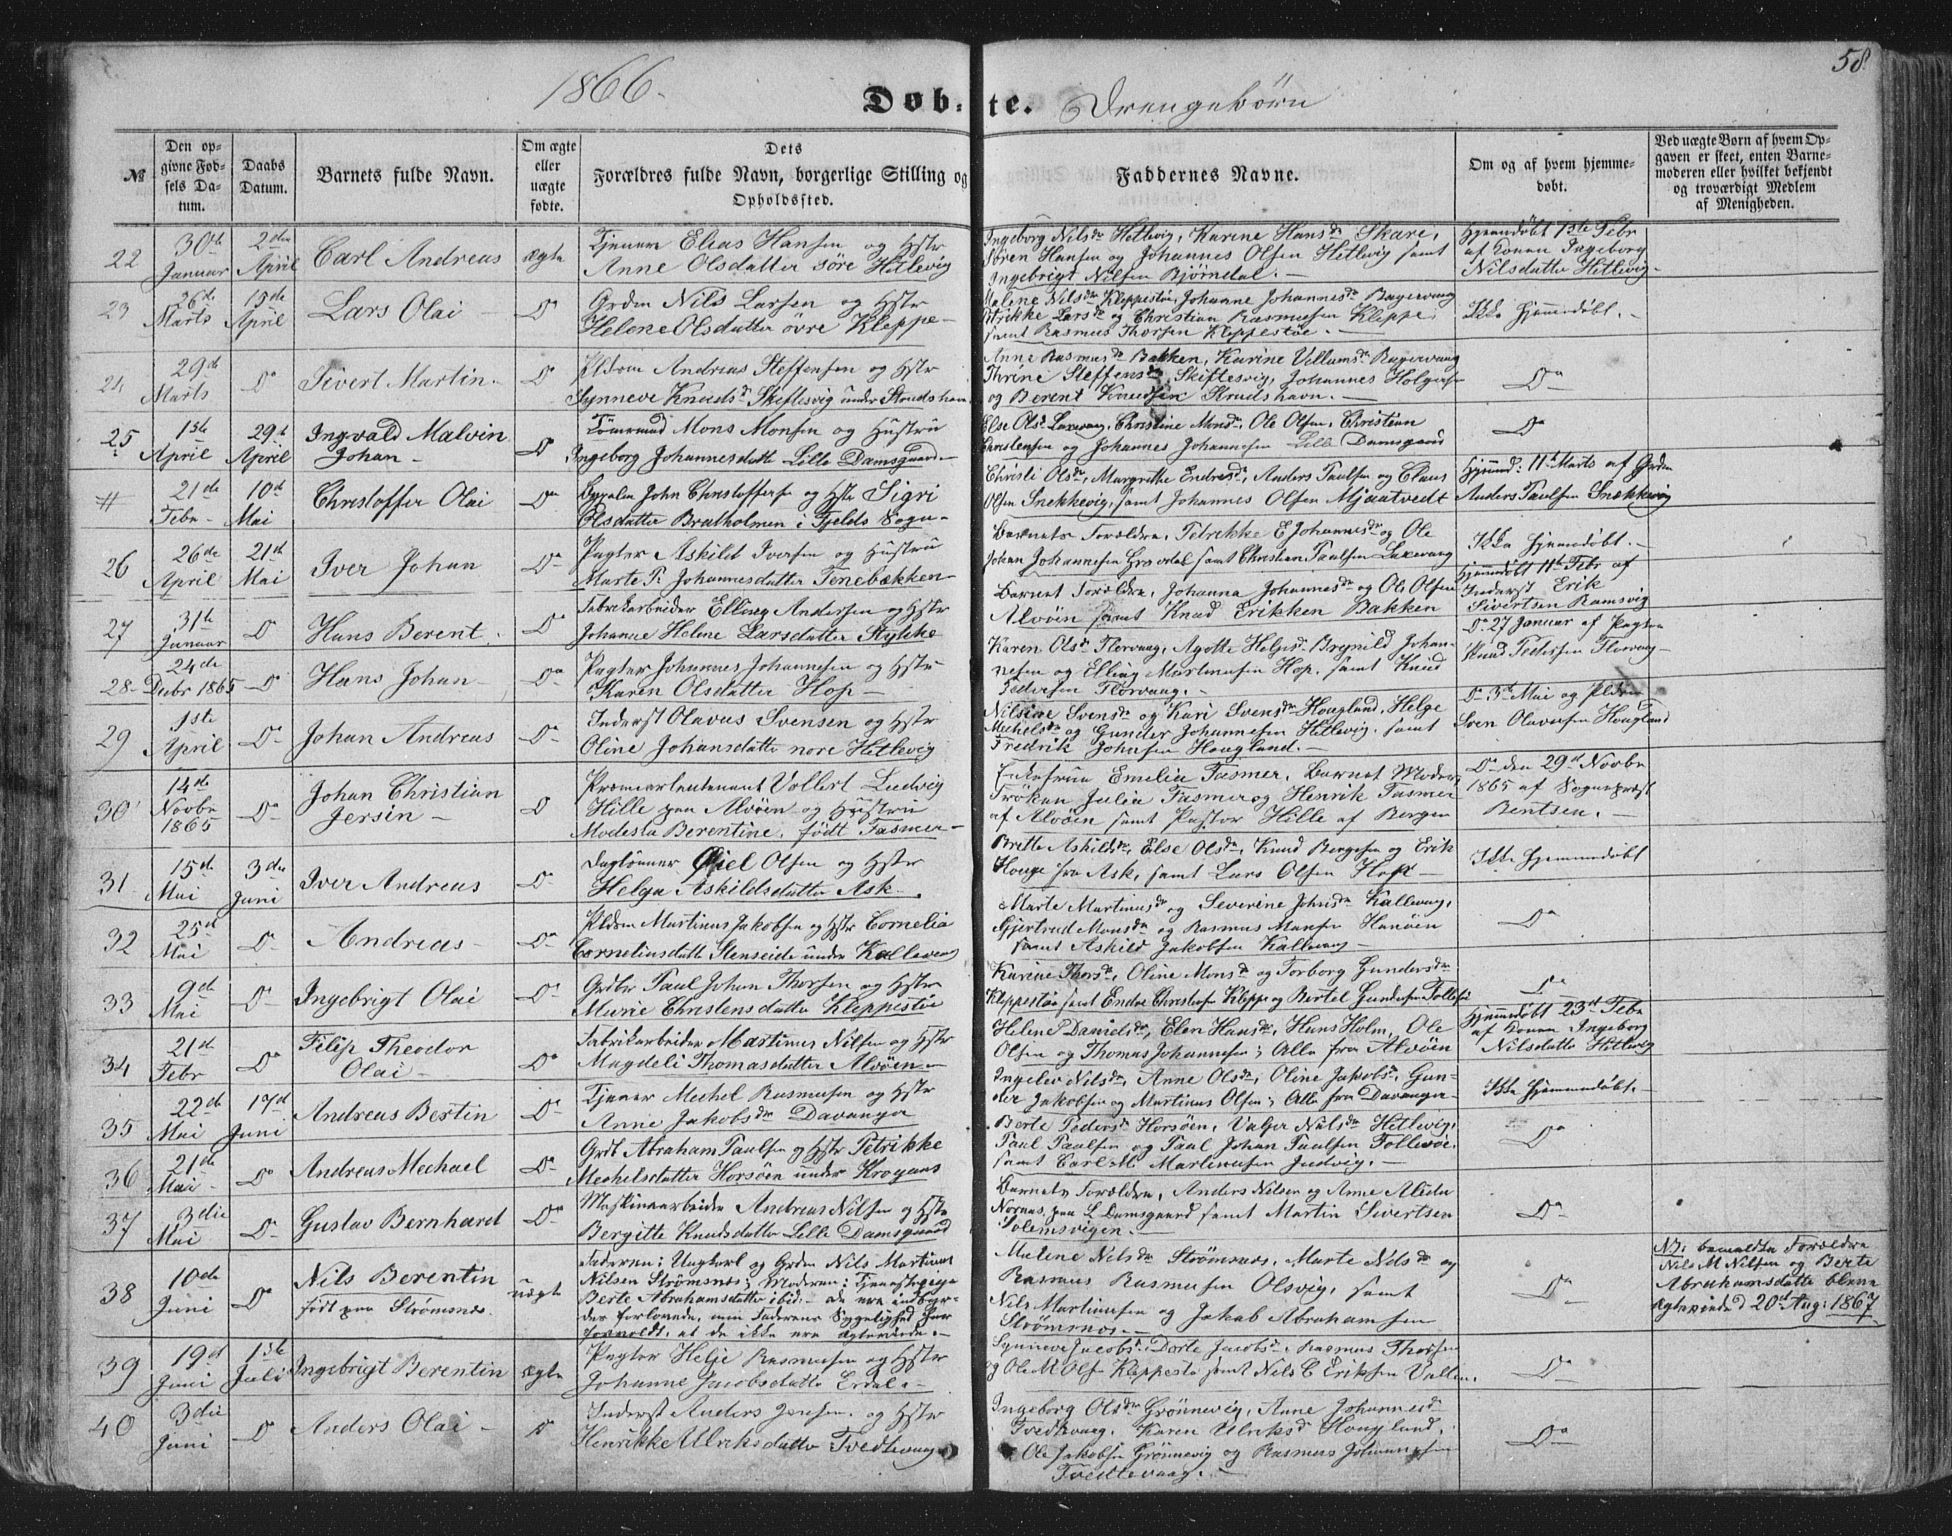 58
1866.
Dob-te. Drengebörn
№
Den opgivne Fødsels Datum.
Daabs Datum.
Barnets fulde Navn.
Om ægte eller uægte fødte.
Dets Forældres fulde Navn, borgerlige Stilling og Opholdssted.
Faddernes Navne.
Om og af hvem hjemmedøbt.
Ved uægte Børn af hvem Opgaven er skeet, enten Barnemoderen eller hvilket bekjendt og troværdigt Medlem af Menigheden.
22
30te Januar
2den April
Carl Andreas
ægte
Tjener Elias Hansen og Hstr
Anne Olsdatter söre Hetlevig
Ingeborg Nilsdr Hetlevig, Karine Hansdr Skare,
Sören Hansen og Johannes Olsen Hetlevig samt
Ingebrigt Nilsen Bjørndal.
Hjemmdöbt 1ste Febr
af Konen Ingeborg
Nilsdatter Hetlevig
23
26de Marts
15de April
Lars Olai
Do
Grdm Nils Larsen og Hstr
Helene Olsdatter övre Kleppe
Malene Nilsdr Kleppestöe, Johanne Johannesdr Bagervaag
Strikke Larsdr og Christian Rasmussen Kleppe,
samt Rasmus Thorsen Kleppestöe.
Ikke Hjemmdöbt.
24
29de Marts
Do
Sivert Martin
Do
Pldsm Andreas Steffensen og Hstr
Synneve Knudsdr Skiftesvig under Strudshavn
Anne Rasmusdr Bakken, Karine Villumsdr Bagervaag
Thrine Steffensdr Skiftesvig, Johannes Holgers
og Berent Knudsen Strudshavn.
Do
25
1ste April
29de April
Ingvald Malvin
Johan
Do
Tömermd Mons Monsen og Hustrü
Ingeborg Johannesdatter Lille Damsgaard
Else Olsdr Laxevaag, Christine Monsdr, Ole Olsen, Christian
Christensen og Johannes Johannesen Lille Damsgaard
Do
#
21de Febr
10de Mai
Christoffer Olai
Do
John Christoffersen og Hstr Sigri
Olsdatter Bratholmen i Fjelds Sogn
Christi Olsdr, Margrethe Endresdr, Anders Paulsen og Claus
Olsen Snekkevig, samt Johannes Olsen Mjaatvedt
Hjemmd: 11te Marts af Grdm
Anders Paulsen Snekkevig
26
26de April
21de Mai
Iver Johan
Do
Pagter Askild Iversen og Hustrü
Marte P. Johannesdatter Tenebækken
Barnets Forældre, Petrikke E Johannesdr og Ole
Johan Johannesen Gravdal samt Christian Paulsen Laxevaag
Ikke Hjemmdöbt.
27
31te Januar
Do
Hans Berent
Do
Fabrikarbeider Elling Andersen og Hstr
Johanne Helene Larsdatter Stykke
Barnets Forældre, Johanna Johannesdr og Ole Olsen
Alvöen samt Knud Erikken Bakken
Hjemmdöbt 11te Febr af
Inderst Erik
Sivertsen Ramsvig
28
24de Debr 1865
Do
Hans Johan
Do
Pagter Johannes Johannesen og Hstr
Karen Olsdatter Hop
Karen Olsdr Florvaag, Agotte Helgesdr Brynild Johannesen og Elling Martinusen Hop, samt Knud
Pedersen Florvaag.
Do 27 Januar af Pagter
Knud Pedersen Florvaag
29
1ste April
Do
Johan Andreas
Do
Inderst Olavus Svensen og Hstr
Oline Johansdatter nore Hetlevig
Nilsine Svensdr og Kari Svensdr Hougland, Helge
Mechelsdr og Gunder Johannesen Hetlevig, samt
Fredrik Johnsen Hougland.
Do 3de Mai og Pldsm
Sven Olavesen Hougland
30
14de Novbr 1865
Do
Johan Christian
Jersin
Do
Premierleutenant Vollert Ludvig
Hille paa Alvöen og Hustrü
Modesta Berentine, födt Fasmer
Enkefrue Emelia Fasmer, Barnet Moder,
Fröken Julia Fasmer og Henrik Fasmer
af Alvöen samt Pastor Hille af Bergen
Do den 29de Novbr
1865 af Sognepræst
Bentsen.
31
15de Mai
3die Juni
Iver Andreas
Do
Daglönner Öiel Olsen og Hstr
Helga Askildsdatter Ask
Britte Askildsdr, Else Olsdr, Knud Bergesen og Erik
Houge fra Ask, samt Lars Olsen Hop
Ikke Hjemmendöbt
32
25de Mai
Do
Andreas
Do
Pldsm Martinus Jakobsen og Hstr Cornelia
Corneliusdatter Stenseide under Kallevaag
Marte Martinusdr og Severine Johnsdr Kallevaag,
Gjertrud Monsdr og Rasmus Monsen Hanöen
samt Askild Jakobsen Kallevaag
Do
33
9de Mai
Do
Ingebrigt Olai
Do
Grdbr Paul Johan Thorsen og Hstr
Marie Christensdatter Kleppestöe
Karine Thorsdr, Oline Monsdr og Torborg Gundersdr
Kleppestöe samt Endre Christofer Kleppe og Bertel Gundersen Follesö
Do
34
21de Febr
Do
Filip Theodor
Olai
Do
Fabrikarbeider Martinus Nilsen og Hstr
Magdeli Thomasdatter Alvöen
Helene Danielsdr, Elen Hansdr, Hans Holm, Ole
Olsen og Thomas Johannesen; Alle fra Alvöen
Hjemmdöbt 23de Febr
af Konen Ingeborg
Nilsdatter Hetlevig
35
22de Mai
17de Juni
Andreas Bertin
Do
Tjener Mechel Rasmussen og Hstr
Anne Jakobsdr Davanger
Ingelev Nilsdr, Anne Olsdr, Oline Jakobsdr, Gunder Jakobsen og Martinus Olsen; Alle fra Davanger
Ikke Hjemmendöbt.
36
21de Mai
Do
Andreas Mechael
Do
Grdb Abraham Paulsen og Hstr Petrikke
Mechelsdatter Horsöen under Krogaas
Berte Pedersdr Horsöen, Valger Nilsdr Hetlevig,
Paul Paulsen og Paul Johan Paulsen Follesöe,
samt Carl M. Martinusen Judvig.
Do
37
3die Mai
Do
Gustav Bernhard
Do
Maskinarbeider Andreas Nilsen og Hstr
Bergitte Knudsdatter Lille Damsgaard
Barnets Forældre, Anders Nilsen og Anne Alida
Nornes, paa L Damsgaard samt Martin Sivertsen
Solemsvigen.
Do
38
10de Juni
Do
Nils Berentin
født paa Strömsnes
uægte
Faderen: Ungkarl og Grdm Nils Martinus
Nilsen Strömsnes; Moderen: Tjenestepige
Berte Abrahamsdatter ibid: - de ere indbyrdes forlovede, men Faderens Sygelighed har
forvoldt, at de ikke ere ægteviede.
Malene Nilsdr Strömsnes, Marte Nilsdr og
Rasmus Rasmussen Olsvig, samt
Nils Martinusen og Jakob Abrahamsen
Strömsnes.
Do
NB: bemeldte Forældre
Nils M Nilsen og Berte
Abrahamsdatter bleve
ægteviede d 20de Aug: 1867
39
19de Juni
1ste Juli
Ingebrigt Berentin
ægte
Pagter Helje Rasmussen og Hstr
Johanne Jacobsdatter Erdal.
Synneve Jacobsdr Dorte Jacobsdr Rasmus Thorsen
og Ole M Olsen Kleppestö samt Nils C Eriksen Vallen.
Do
40
3die Juni
Do
Anders Olai
Do
Inderst Anders Jensen og Hstr
Henrikke Ulriksdatter Tvedtevaag
Ingeborg Olsdr Grönnevig, Anne Johannesdr
Tvedtevaag, Karen Ulriksdr Hougland,
Ole Jakobsen Grönnevig og Rasmus Johannesen
Tvedtevaag.
Do